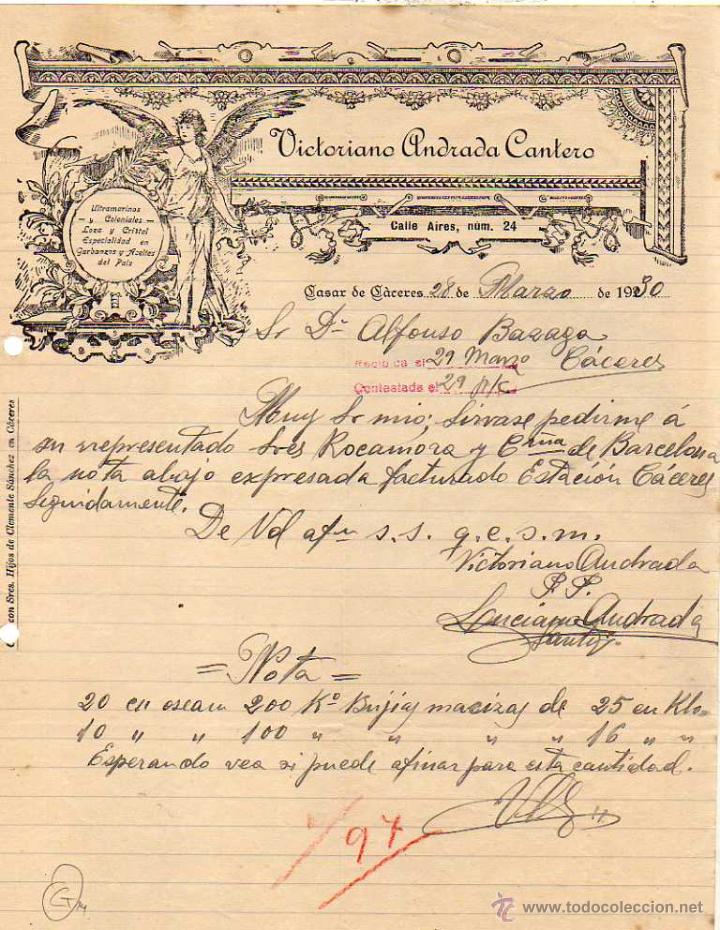 Victoriano Andrada Cantero
Ultramarinos
y Coloniales
Loza y Cristal
Especialidad en
Garbanzos y Aceites
del País
Calle Aires, núm. 24
Casar de Càceres 28 de Marzo de 1930
Sr Dn Alfonso Bazaga
Recibida el 29 Marzo Cáceres
Contestada el 29 p/c
Muy Sr mio; Sirvase pedirme á
su representado Sres Rocamora y Cia de Barcelona
la nota abajo expresada facturado Estación Cáceres
Seguidamente.
De Vd afmo s.s. q.e.s.m.
Victoriano Andrada
P.P.
Luciano Andrada
con Sres. Hijos de Clemente Sánchez en Cáceres
= Nota =
20 c/ osean 200 Ko Bujias macizas de 25 en Klo.
10 " " 100 " " " " 16 " "
Esperando vea si puede afinar para esta cantidad.
97
www.todocoleccion.net